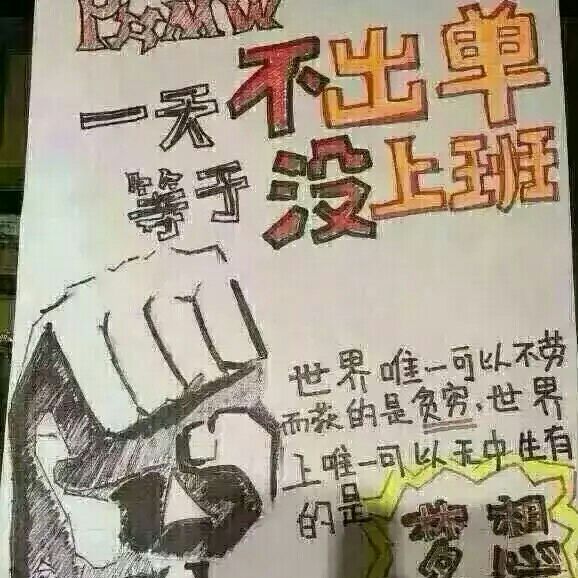 一天不出单
等于没上班
世界唯一可以不劳
而获的是贫穷、世界
上唯一可以无中生有
的是
梦想